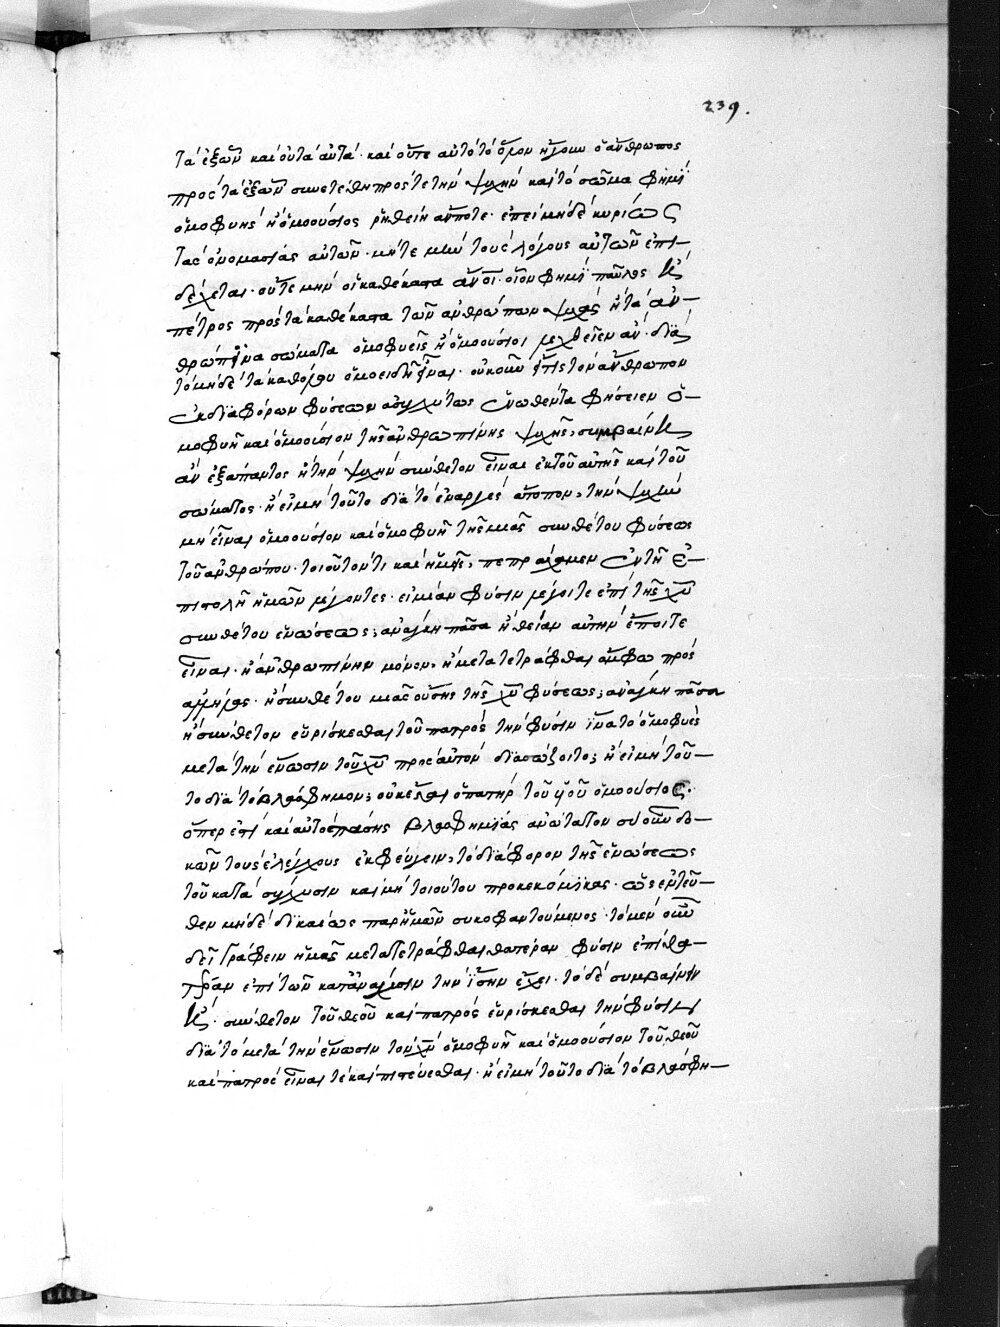 239.
τὰ ἐξ ὧν καὶ οὐ ταὐτά· καὶ οὔτε αὐτὸ τὸ ὅλον ἤγουν ὁ ἄνθρωπος
πρὸς τὰ ἐξ ὧν συνετέθη πρός τε τὴν ψυχὴν καὶ τὸ σῶμα φημὶ
ὁμοφυὴς ἢ ὁμοούσιος ῥηθείη ἄν ποτε· ἐπεὶ μηδὲ κυρίως
τὰς ὀνομασίας αὐτῶν· μήτε μὴν τοὺς λόγους αὐτῶν ἐπι–
δέχεται· οὔτε μὴν οἱ καθέκαστα ἄνοι· οἷον φημὶ παῦλος καὶ
πέτρος πρὸς τὰ καθέκαστα τῶν ἀνθρώπων ψυχὰς ἢ τὰ ἀν–
θρώπινα σώματα ὁμοφυεῖς ἢ ὁμοούσιοι λεχθεῖεν ἄν· διὰ
τὸ μηδὲ τὰ καθόλου ὁμοειδῆ εἶναι· οὐκοῦν εἴ τις τὸν ἄνθρωπον
ἐκ διαφόρων φύσεων ἀσυγχύτως ἑνωθέντα φήσειεν ὁ–
μοφυῆ καὶ ὁμοούσιον τῆς ἀνθρωπίνης ψυχῆς, συμβαίνει
ἂν ἐξάπαντος ἢ τὴν ψυχὴν σύνθετον εἶναι ἐκ τοῦ αὐτῆς καὶ τοῦ
σώματος· ἢ εἰ μὴ τοῦτο διὰ τὸ ἐναργὲς ἄτοπον, τὴν ψυχὴν
μὴ εἶναι ὁμοούσιον καὶ ὁμοφυῆ τῆς μιᾶς συνθέτου φύσεως
τοῦ ἀνθρώπου· τοιοῦτόν τι καὶ ἡμεῖς, πεπράχαμεν ἐν τῇ ἐ–
πιστολῇ ἡμῶν λέγοντες· εἰ μίαν φύσιν λέγοιτε ἐπὶ τῆς χυ
συνθέτου ἑνώσεως; ἀνάγκη πᾶσα ἢ θείαν αὐτὴν εἴποιτε
εἶναι· ἢ ἀνθρωπίνην μόνον, ἢ μετατετράφθαι ἄμφω πρὸς
ἀλλήλας· ἢ συνθέτου μιᾶς οὔσης τῆς χυ φύσεως; ἀνάγκη πᾶσα
ἢ σύνθετον εὑρίσκεσθαι τοῦ πατρὸς τὴν φύσιν ἵνα τὸ ὁμοφυὲς
μετὰ τὴν ἕνωσιν τοῦ χυ πρὸς αὐτὸν διασώζοιτο; ἢ εἰ μὴ τοῦ–
το διὰ τὸ βλάσφημον; οὐκ ἔσται ὁ πατὴρ τοῦ υἱοῦ ὁμοούσιος·
ὅπερ ἐστὶ καὶ αὐτὸ πάσης βλασφημίας ἀνώτατον σὺ οὖν δο–
κῶν τοὺς ἐλέγχους ἐκφεύγειν, τὸ διάφορον τῆς ἑνώσεως
τοῦ κατὰ σύγχυσιν καὶ μὴ τοιούτου προκεκόμικας· ὡς ἐντεῦ–
θεν μηδὲ δικαίως παρ' ἡμῶν συκοφαντούμενος· τὸ μὲν οὖν
δεῖ γράφειν ἡμᾶς μετατετράφθαι θατέραν φύσιν ἐπὶ θα–
τέραν ἐπὶ τῶν κατ' ἀνάχυσιν τὴν ἴσην ἔχει· τὸ δὲ συμβαίνειν
καὶ· σύνθετον τοῦ θεοῦ καὶ πατρὸς εὑρίσκεσθαι τὴν φύσιν
διὰ τὸ μετὰ τὴν ἕνωσιν τὸν χν ὁμοφυῆ καὶ ὁμοούσιον τοῦ θεοῦ
καὶ πατρὸς εἶναί τε καὶ πιστεύεσθαι· ἢ εἰ μὴ τοῦτο διὰ τὸ βλάσφη–